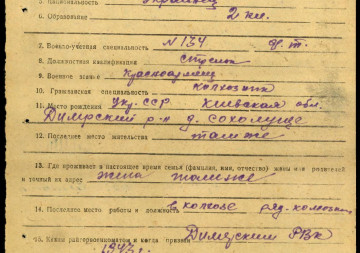 5. Национальность Украинец
6. Образование 2 кл.
7. Военно-учетная специальность №134 
8. Должностная квалификация стрелок
9. Военное звание Красноармеец
10. Гражданская специальность колхозник
11. Место рождения УССР Киевская обл.
Димерский р-н д.
12. Последнее место жительства там же
13. Где проживает в настоящее время семья (фамилия, имя, отчество) жены или родителей
и точный их адрес жена там же
14. Последнее место работы и должность в колхозе ряд. колхозник
15. Каким райгорвоенкоматом и когда призван Димерским РВК